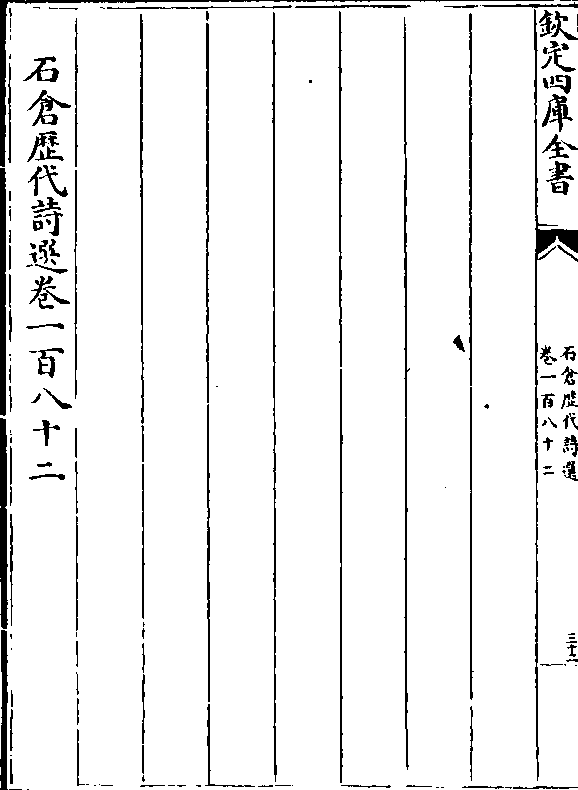 欽定四庫全書
石倉歷代詩選
卷一百八十二
三十二
石倉歴代詩選卷一百八十二